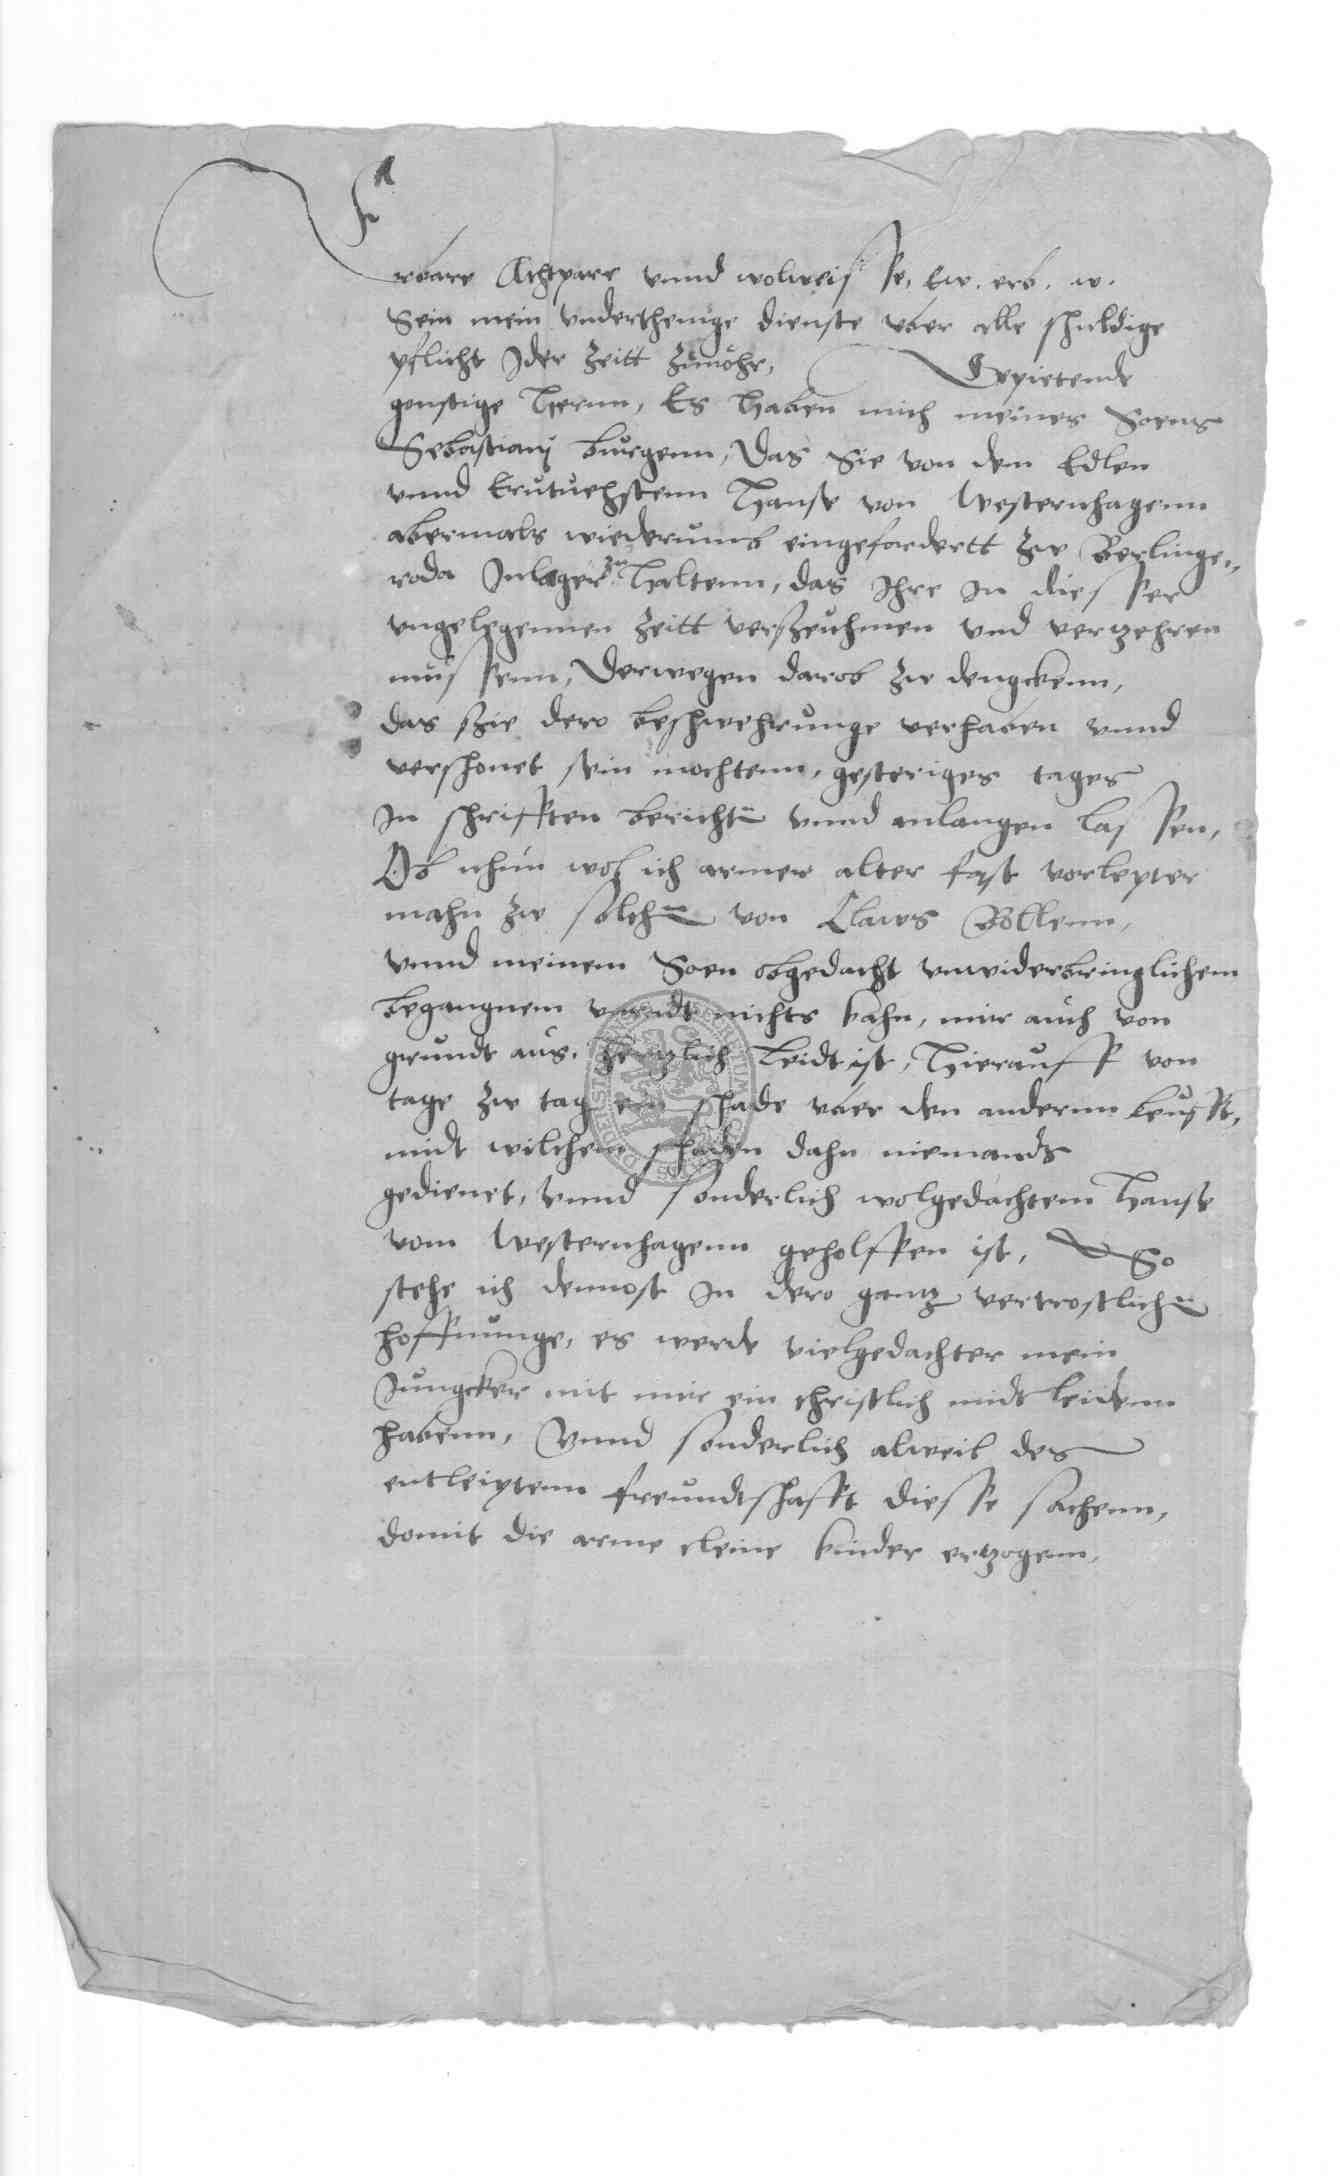 Erbare Achtpare vnnd wolweisse, Ew. erb. w.
Sein mein vnderthenige dienste vber alle schuldige
pflicht Jder Zeitt Zuuohr, Gepietende
gonstige Hernn, Es haben mich meines Soens
Sebastianj burgenn, Das Sie von dem Edlen
vnnd Ernuehstenn Hanse von Westernhagenn
abermals wiederumb eingefordertt Zw Berlinge,,
roda Jnleger zu Haltenn, das Jhre Jn diesser
vngelegennen Zeitt verszeuhmen vnd vertzehren
mussenn, Derwegen darob Zw dengckenn,
das szie dero beschwehrunge verhaben vnnd
verschonet sein mochtenn, gesteriges tages
Jn schrifften berichtn vnnd anlangen lassen,
Ob nhun wol ich armer alter fast vorlepter
mahn Zw solchn von Clawes Bollenn,
vnnd meinem Soen obgedacht vnwiderbringlichem
begangnem mordt nichts kahn, mir auch von
grundt aus. hertzlich leidt ist, Hierauff von
tage Zw tag ein schade vber den andernn leufft,
midt wilchem schaden dahn niemands
gedienet, vnnd sonderlich wolgedachtem Hanse
vom Westernhagenn geholffen ist, So
stehe ich dennost Jn dero gantz vertrostlichn
hoffnunge, es werde vielgedachter mein
Jungcker mit mir ein christlich midt leidenn
habenn, Vnnd sonderlich alweil des
entleiptenn freundtschafft diesse sachenn,
domit die arme cleine kinder ertzogenn,